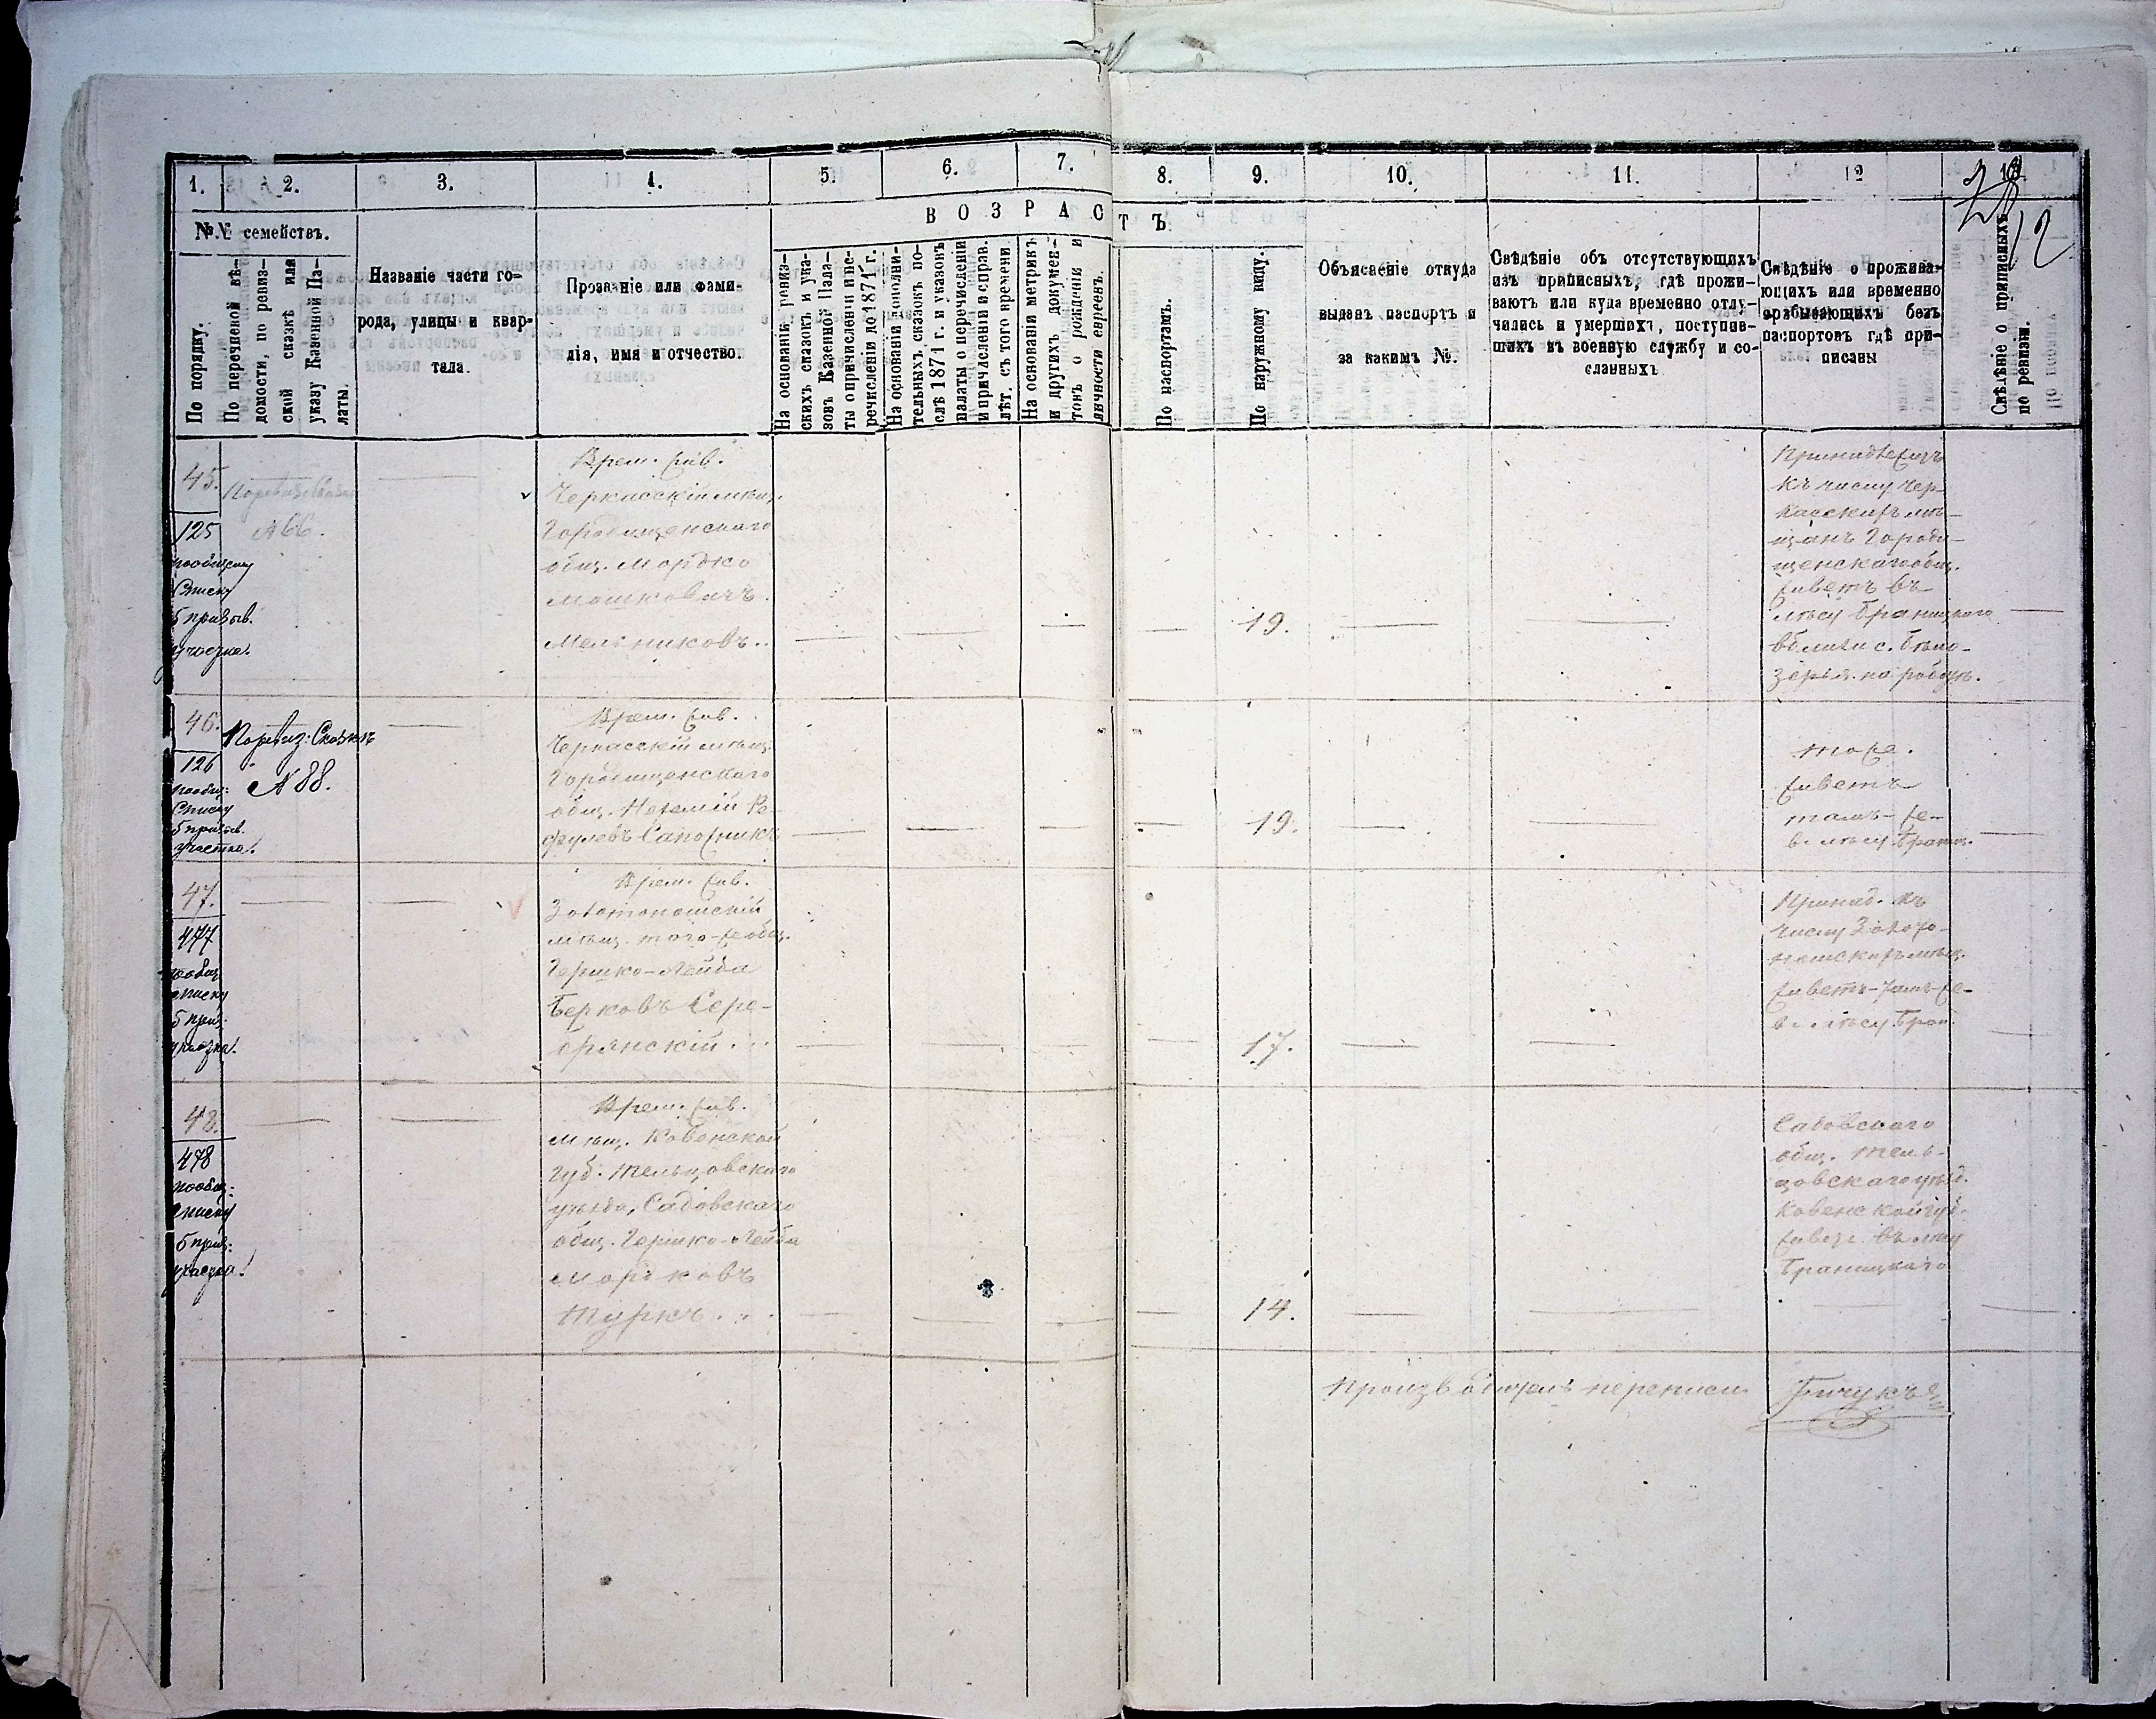 1.
2.
3.
4.
5.
6.
7.
8.
9.
10.
11.
12
13.
28
12
№№ семействъ.
В О З Р А С Т Ъ
По порядку.
По перечневой вѣ-
домости, по ревиз-
ской сказкѣ или
указу Казенной Па-
латы.
Названіе части го-
рода, улицы и квар-
тала.
Прозваніе или фами-
лія, имя и отчество.
На основаніи ревиз-
скихъ сказокъ и ука-
зовъ Казенной Пала-
ты о причисленіи и пе-
речисленіи до 1871 г.
На основаніи дополни-
тельныхъ сказокъ по-
слѣ 1871 г. и указовъ
палаты о перечисленіи
и причисленіи и справ.
лѣт. съ того времени
На основаніи метрикъ
и другихъ докумен-
товъ о рожденіи и
личности евреевъ.
По паспортамъ.
По наружному виду.
Объясненіе откуда
выданъ паспортъ и
за какимъ №.
Свѣдѣніе объ отсутствующихъ
изъ приписныхъ, гдѣ прожи-
ваютъ или куда временно отлу-
чились и умершихъ, поступив-
шихъ въ военную службу и со-
сланныхъ
Свѣдѣніе о прожива-
ющихъ или временно
пребывающихъ безъ
паспортовъ гдѣ при-
писаны
Свѣдѣніе о приписныхъ
по ревизіи.
45.
125
по общему
Списку
5 призыв.
участка.
№ 66.
Врем. жив.
Черкасскій мѣщ.
Городищенскаго
общ. Мордко
Мошковичъ
Мельниковъ..
19.
Принадлежитъ
къ числу Чер-
касскихъ мѣ-
щанъ Городи-
щенскаго общ.
живетъ въ
лѣсу Браницкаго
вблизи с. Бѣло-
зерья.
46.
126
по общ:
Списку
5 призыв.
участка.
По ревиз: Сказкѣ
№ 88.
Врем. жив.
Черкасскій мѣщ.
Городищенскаго
общ.
Сапожникъ
19.
тоже.
живетъ
тамъ-же
въ лѣсу Браниц.
47.
477
по общ.
списку
5 приз.
участка.
Врем. жив.
Золотоношскій
мѣщ. того-же общ.
Гершко-Лейба
Берковъ Сере-
брянскій.
17.
Принад. къ
числу Золото-
ношскихъ мѣщ.
живетъ тамъ-же
въ лѣсу Бран.
48.
478
по общ:
списку
5 приз:
участка.
Врем. жив.
мѣщ. Ковенской
губ. Тельшовскаго
уѣзда, Садовскаго
общ. Гершко-Лейба
Морковъ
Туркъ.
14.
Садовскаго
общ. Тель-
шовскаго уѣзд.
Ковенской губ.
живетъ въ лѣсу
Браницкаго
Производитель переписи